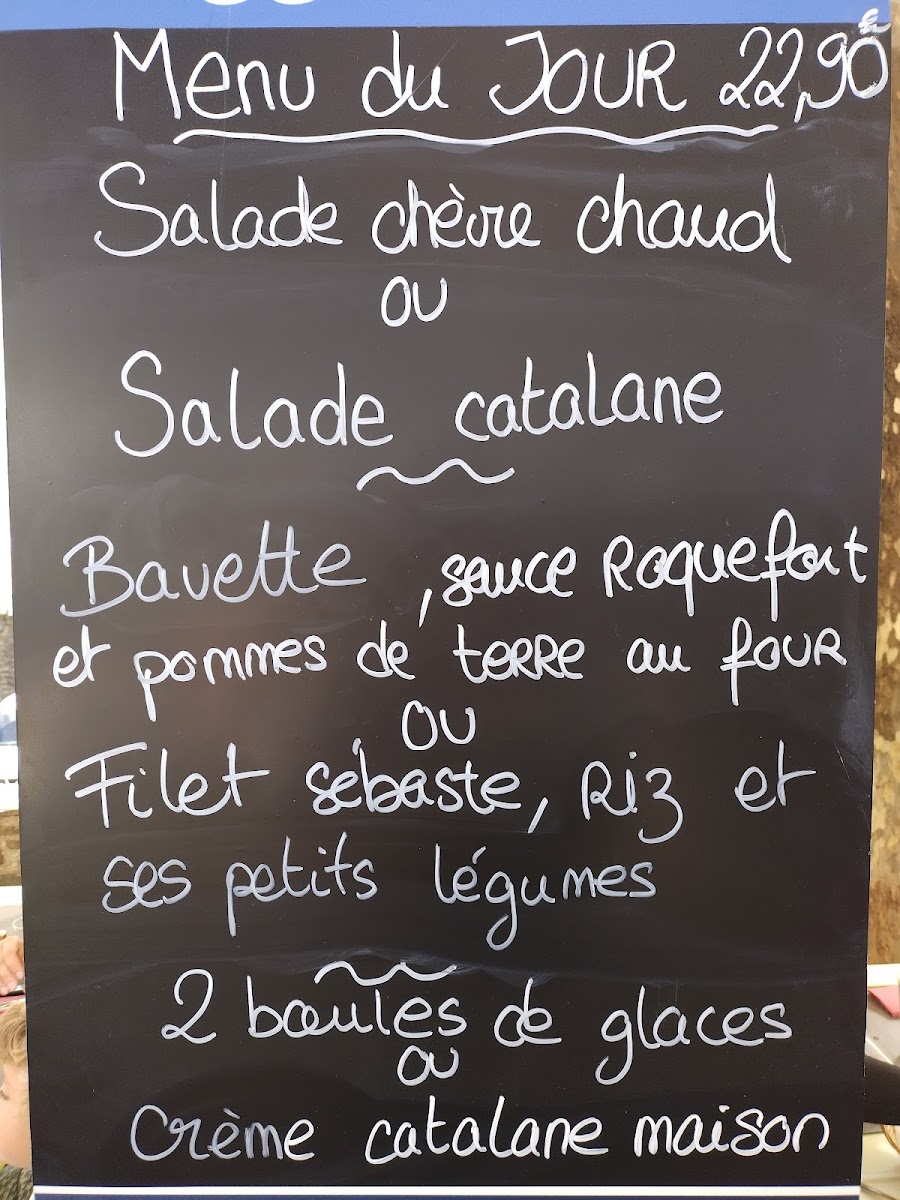 Menu du JOUR 22,90€
Salade chèvre chaud
ou
Salade catalane
Bavette, sauce Roquefort
et pommes de terre au four
ou
Filet sébaste, Riz et
ses petits légumes
2 boules de glaces
ou
Crème catalane maison